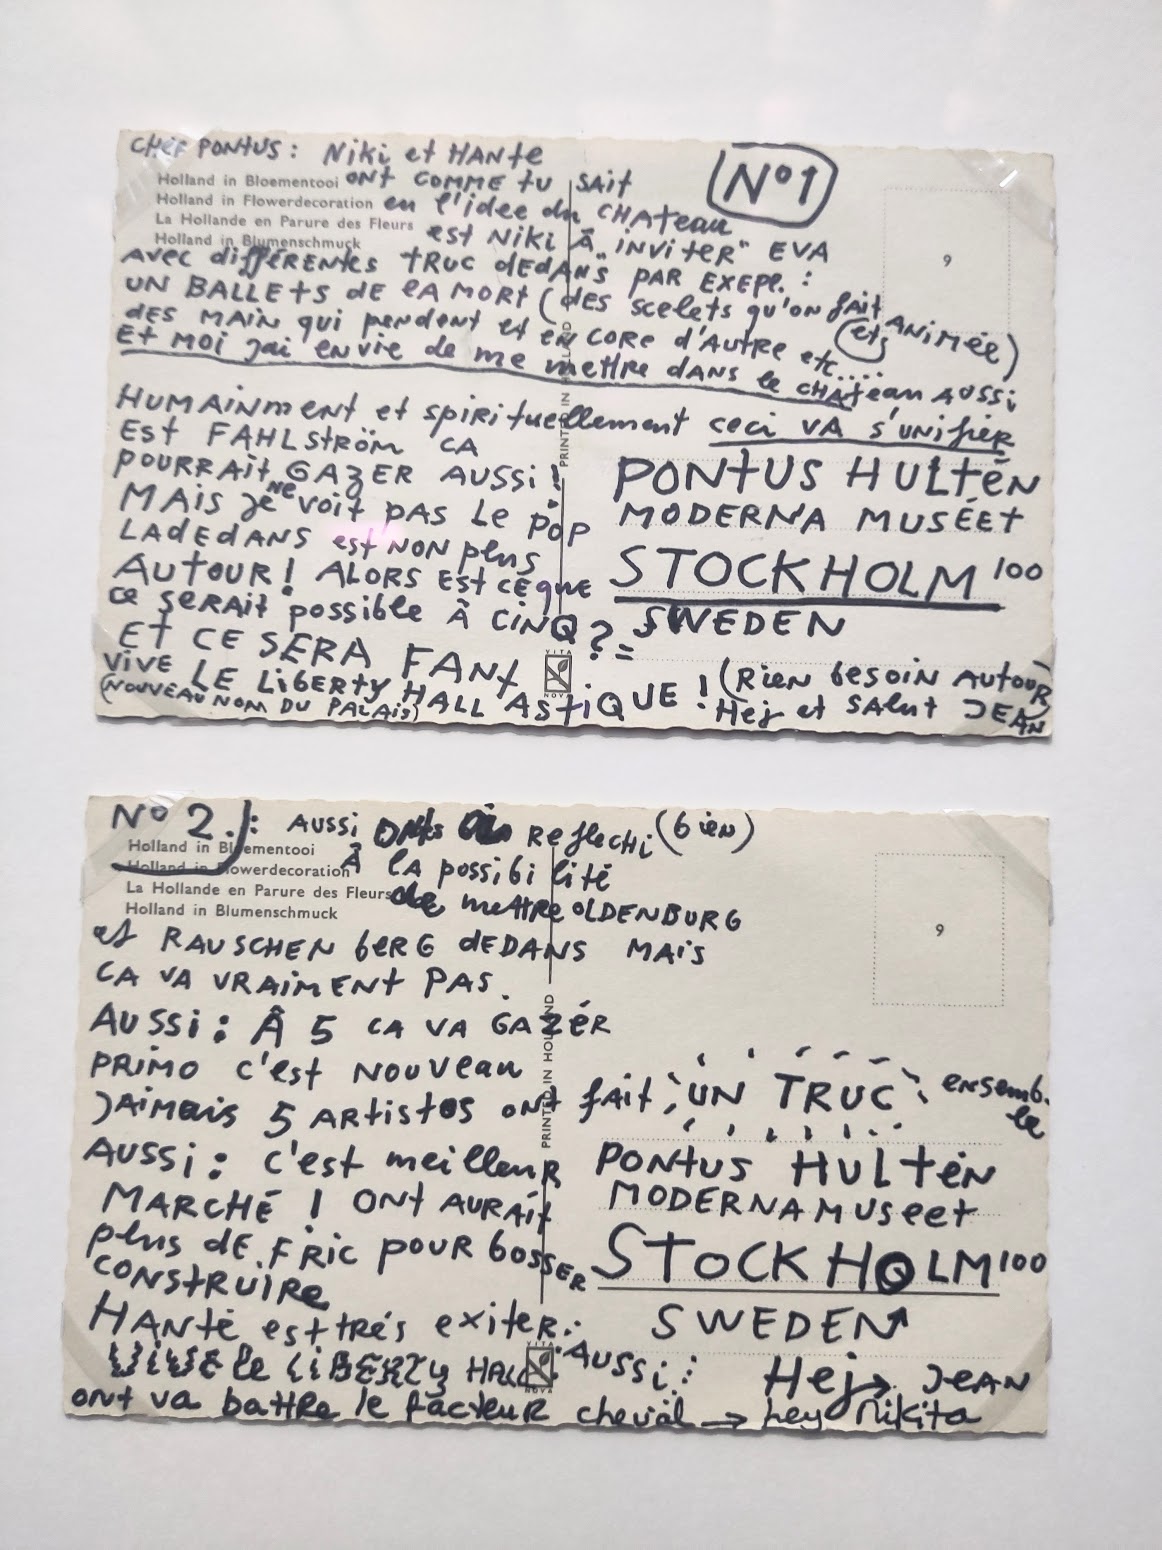 CHER PONTUS: NIKI et HANTE
Nº1
Holland in Bloementooi ONT COMME TU SAIT
Holland in Flowerdecoration en l'idee du CHATEAU
La Hollande en Parure des Fleurs est NIKI Â "INVITER" EVA
Holland in Blumenschmuck
AVEC différentes TRUC dEDANS PAR EXEPL. :
UN BALLETS dE LA MORT (DES SCELETS qu'ON fAIT ANIMÉE)
DES MAIN qui pendent et EN CORE d'AUTRE etc....
(et)
ET MOI jai ENVIE de me mettre DANS le CHATEAU AUSSI
HUMAINMENT et spirituellement ceci VA s'UNIFIER
EST FAHLSTRÖM CA
POURRAIT GAZER AUSSI!
MAIS JE NE VOIT PAS LE POP
LADEDANS est NON plus
AUTOUR! ALORS EST CEQUE
ce SERAIT possible Â CINQ?=
ET CE SERA FANT
ASTIQUE! (RIEN besoin AUTOUR)
VIVE LE LIBERTY HALL
(NOUVEAU NOM DU PALAIS)
Hej et SALUT JEAN
PONTUS HULTÉN
MODERNA MUSÉET
STOCKHOLM 100
SWEDEN
9
PRINTED IN HOLLAND
VITA
NOVA
Nº 2.): AUSSI ONT REFLECHI (bien)
Holland in Bloementooi
Holland in Flowerdecoration Â LA possibilité
La Hollande en Parure des Fleurs de mettre OLDENBURG
Holland in Blumenschmuck
et RAUSCHENBERG dEDANS MAIS
CA VA VRAIMENT PAS.
AUSSI: Â 5 CA VA GAZÉR
PRIMO C'EST NOUVEAU
JAIMAIS 5 ARTISTES ONT fait UN TRUC ensemb.
le
AUSSI: C'EST meilleuR
MARCHÉ! ONT AURAIT
plus dE FRIC POUR BOSSER
CONSTRUIRE
HANTÉ EST TRÉS EXITER.:
VIVE le LIBERTY HALL AUSSI:
ont va battre le facteur cheval → hey Nikita
PONTUS HULTÉN
MODERNAMUSEET
STOCKHOLM 100
SWEDEN
Hej → JEAN
9
PRINTED IN HOLLAND
VITA
NOVA